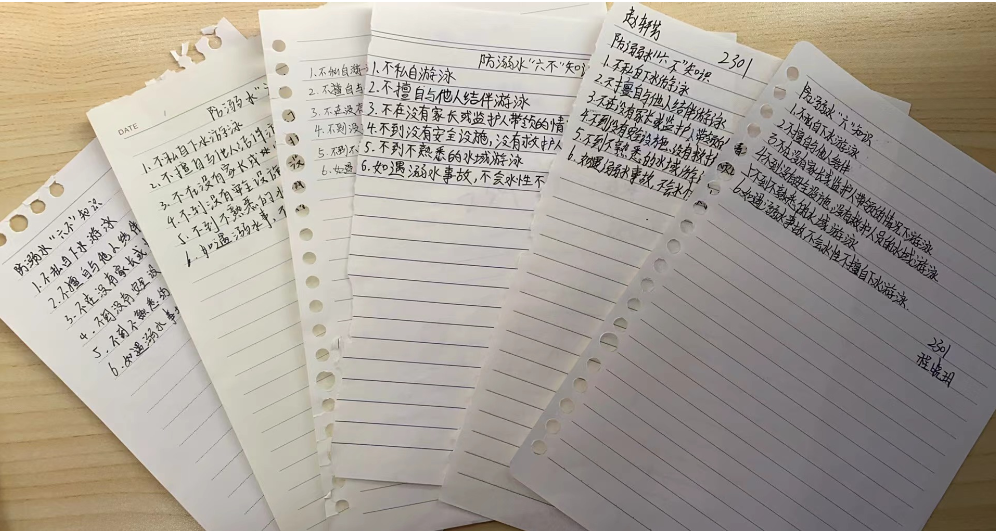 防溺水"六不"知识
1.不私自下水游泳
2.不擅自与他人结伴
3.不在没有家长或
4.不到没有安全设
5.不到不熟悉的
6.如遇溺水事
DATE
防溺水"
1.不私自下水游泳
2.不擅自与他人结伴游
3.不在没有家长或
4.不到没有安全设施
5.不到不熟悉的水
6.如遇溺水事
1.不私自游
2.不擅自与
3.不在没
4.不到没
5.不到不
6.如遇
防溺水"六不"知识
1.不私自游泳
2.不擅自与他人结伴游泳
3.不在没有家长或监护人带领的情
4.不到没有安全设施,没有救护人
5.不到不熟悉的水域游泳
6.如遇溺水事故,不会水性不
2301
防溺水"六不"知识
1.不私自下水游泳
2.不擅自与他人结伴游泳
3.不在没有家长或监护人带领的
4.不到没有安全设施,没有救护
5.不到不熟悉的水域游泳
6.如遇溺水事故,不会水
防溺水"六"知识
1.不私自下水游泳
2.不擅自与他人结伴
3.不在没有家长或监护人带领的情况下游泳
4.不到没有安全设施,没有救护人员的水域游泳
5.不到不熟悉的水域游泳
6.如遇溺水事故不会水性不擅自下水游泳
2301